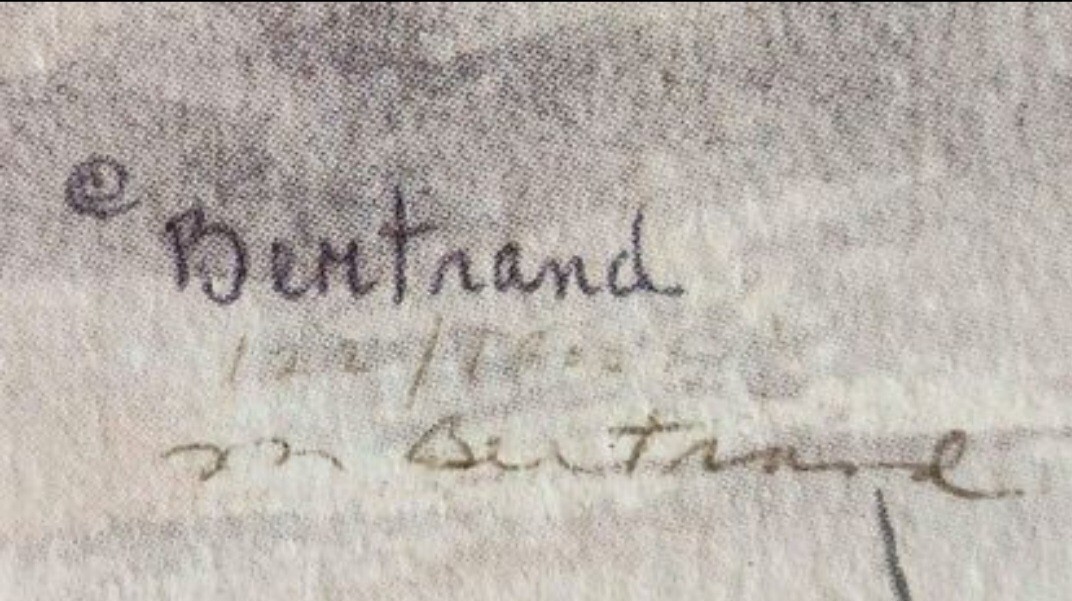 © Bertrand
m Bertrand